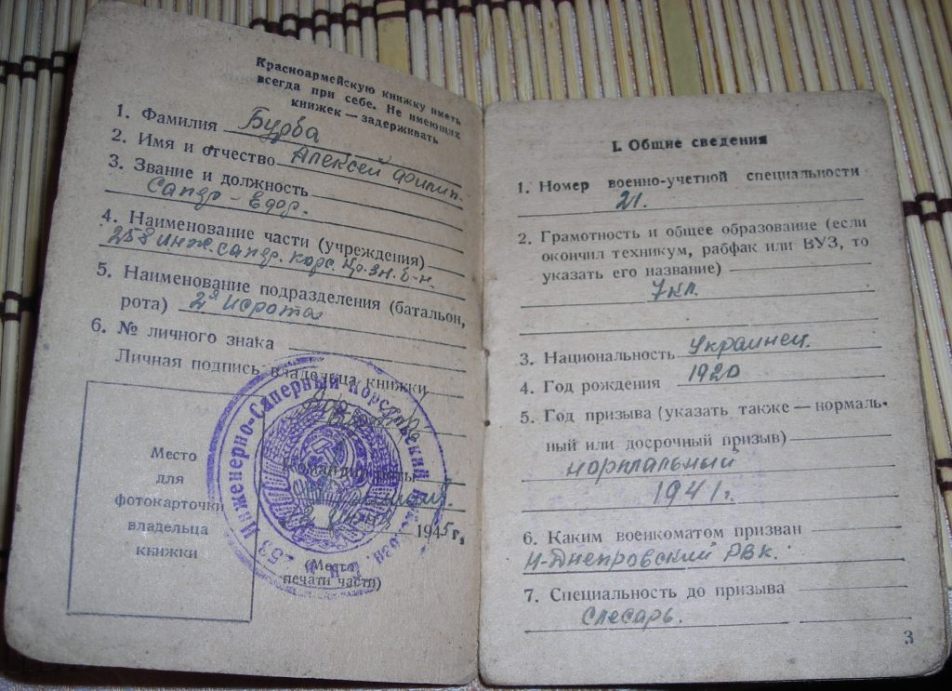 Красноармейскую книжку иметь
всегда при себе. Не имеющих
книжек — задерживать
1. Фамилия Бурба
2. Имя и отчество Алексей Филип.
3. Звание и должность
Сапер - Ездов.
4. Наименование части (учреждения)
253 инж. сапер. корс. Кр. зн. б-н.
5. Наименование подразделения (батальон,
рота) 2я исрота
6. № личного знака
Личная подпись владельца книжки
Командир части
1945 г.
(Место
печати части)
Инженерно-Саперный Корсуньский
253
Место
для
фотокарточки
владельца
книжки
I. Общие сведения
1. Номер военно-учетной специальности
21.
2. Грамотность и общее образование (если
окончил техникум, рабфак или ВУЗ, то
указать его название)
7 кл.
3. Национальность Украинец.
4. Год рождения 1920
5. Год призыва (указать также — нормаль-
ный или досрочный призыв)
нормальный
1941 г.
6. Каким военкоматом призван
Н-Днепровский РВК.
7. Специальность до призыва
Слесарь.
3